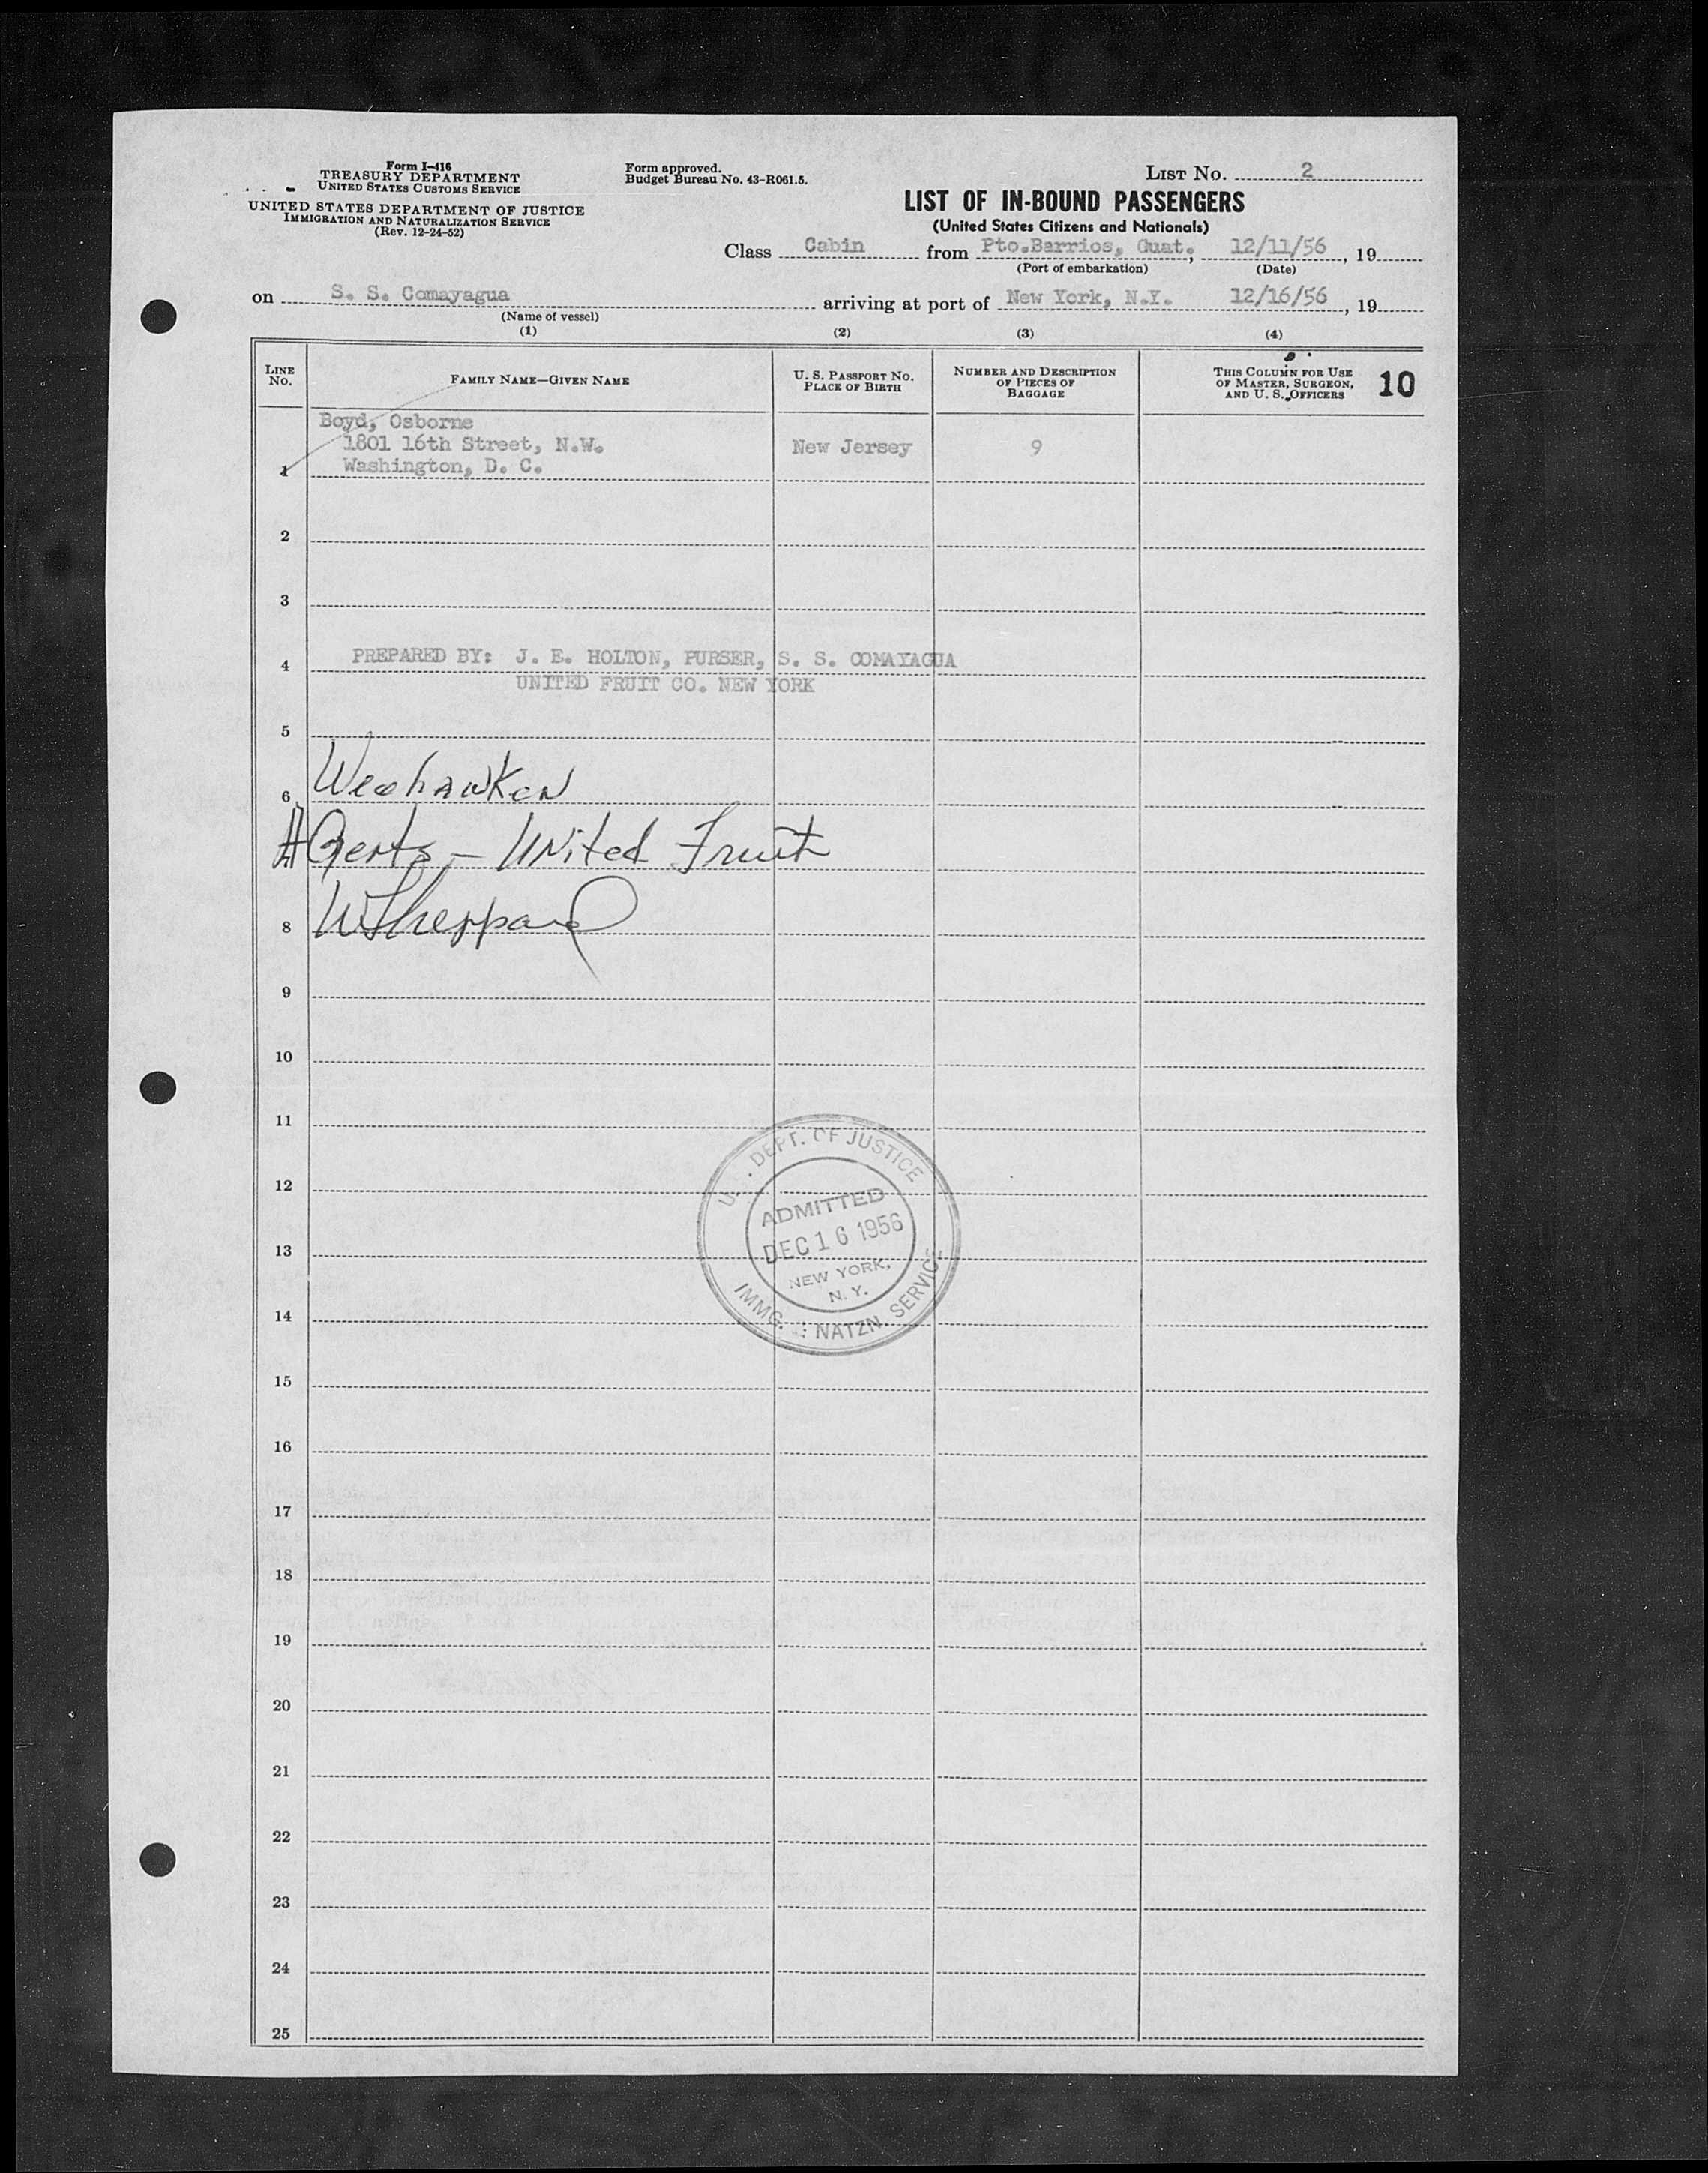 Form I-416
TREASURY DEPARTMENT
UNITED STATES CUSTOMS SERVICE
UNITED STATES DEPARTMENT OF JUSTICE
IMMIGRATION AND NATURALIZATION SERVICE
(Rev. 12-24-52)
Form approved.
Budget Bureau No. 43-R061.5.
LIST No. 2
LIST OF IN-BOUND PASSENGERS
(United States Citizens and Nationals)
Class Cabin from Pto.Barrios, Guat., 12/11/56, 19
(Port of embarkation) (Date)
on S. S. Comayagua arriving at port of New York, N.Y. 12/16/56, 19
(Name of vessel)
(1) (2) (3) (4)
LINE No.
FAMILY NAME—GIVEN NAME
U. S. PASSPORT No.
PLACE OF BIRTH
NUMBER AND DESCRIPTION
OF PIECES OF
BAGGAGE
THIS COLUMN FOR USE
OF MASTER, SURGEON,
AND U. S. OFFICERS
10
Boyd, Osborne
1801 16th Street, N.W. New Jersey 9
1 Washington, D. C.
2
3
4 PREPARED BY: J. E. HOLTON, PURSER, S. S. COMAYAGUA
UNITED FRUIT CO. NEW YORK
5
6 Weehawken
AGents - United Fruit
8 WSheppard
9
10
11
12
13
14
U. . DEPT. OF JUSTICE
ADMITTED
DEC 16 1956
NEW YORK,
N. Y.
IMMG. & NATZN. SERVICE
15
16
17
18
19
20
21
22
23
24
25